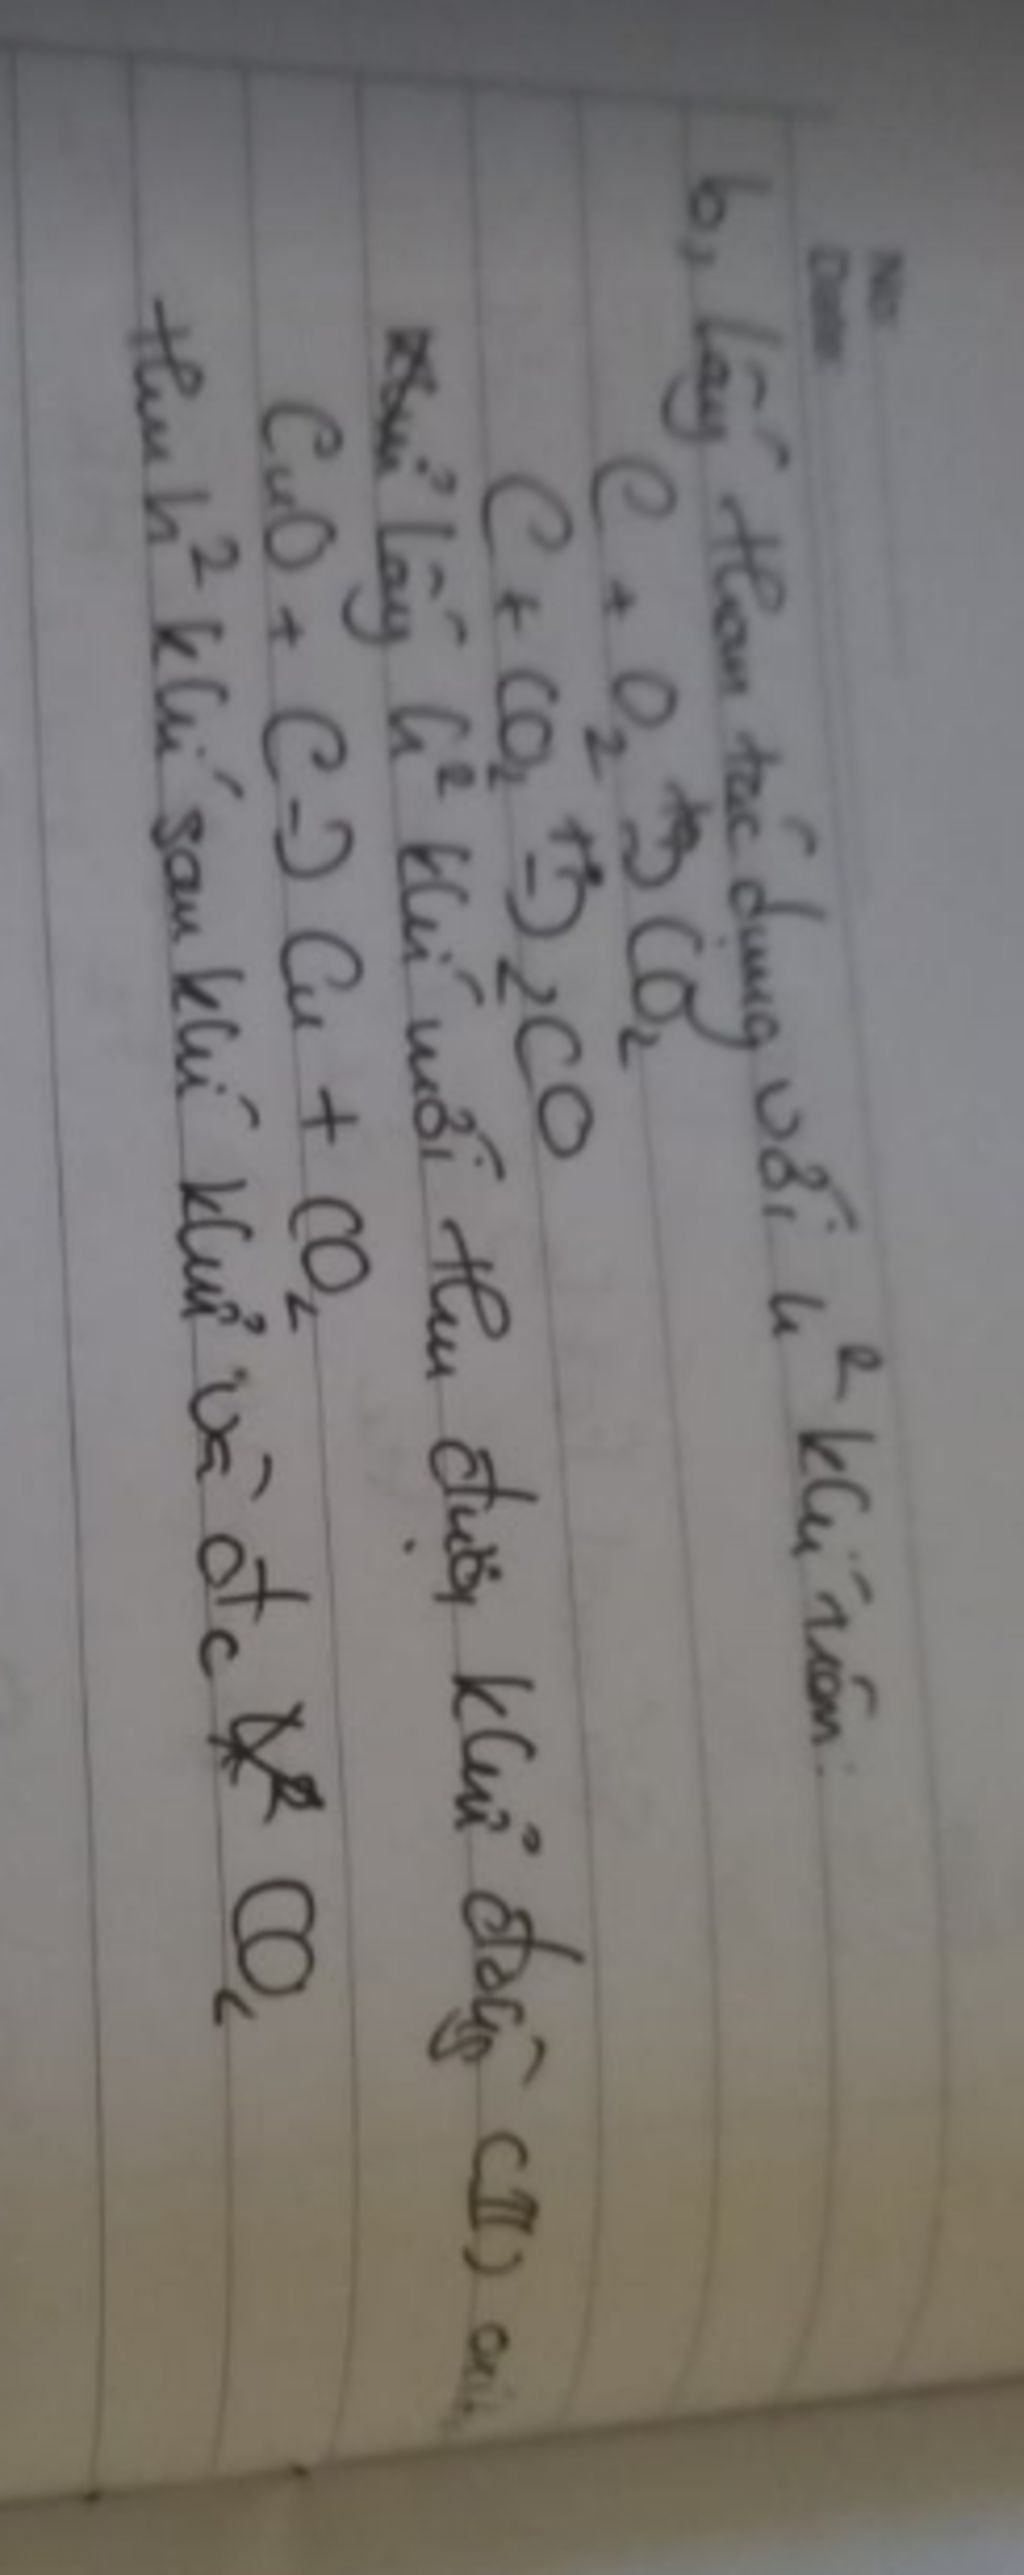 No:
Date:
b, Lấy than tác dụng với h² khí trên:
C + O₂ t°→ CO₂
C + CO₂ t°→ 2CO
lấy h² khí mới thu được khử đồng (II) oxit
CuO + C → Cu + CO₂
thu h² khí sau khi khử và đc CO₂